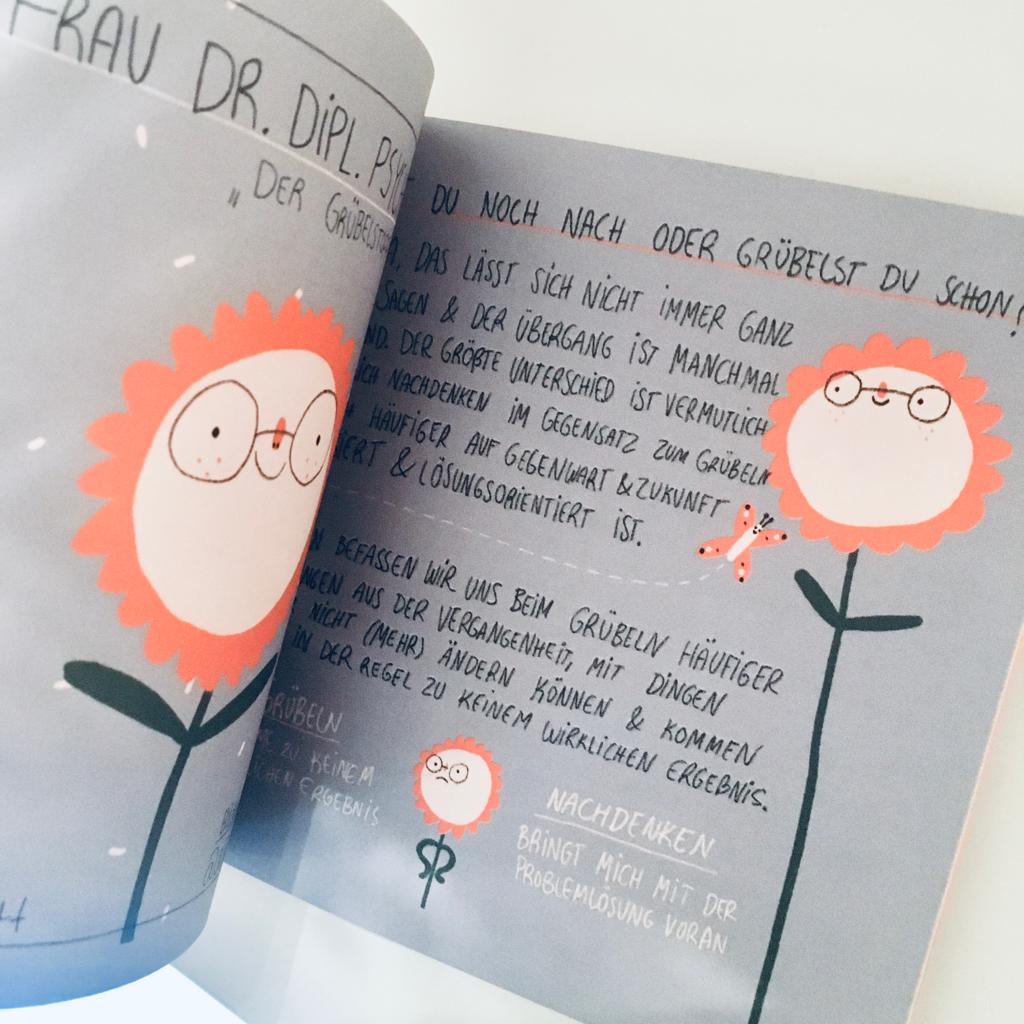 FRAU DR. DIPL.
„DER
DU NOCH NACH ODER GRÜBELST DU SCHON?
DAS LÄSST SICH NICHT IMMER GANZ
SAGEN & DER ÜBERGANG IST MANCHMAL
DER GRÖßTE UNTERSCHIED IST VERMUTLICH
NACHDENKEN IM GEGENSATZ ZUM GRÜBELN
HÄUFIGER AUF GEGENWART & ZUKUNFT
& LÖSUNGSORIENTIERT IST.
BEFASSEN WIR UNS BEIM GRÜBELN HÄUFIGER
AUS DER VERGANGENHEIT, MIT DINGEN
NICHT (MEHR) ÄNDERN KÖNNEN & KOMMEN
IN DER REGEL ZU KEINEM WIRKLICHEN ERGEBNIS.
GRÜBELN
ZU KEINEM
ERGEBNIS
NACHDENKEN
BRINGT MICH MIT DER
PROBLEMLÖSUNG VORAN